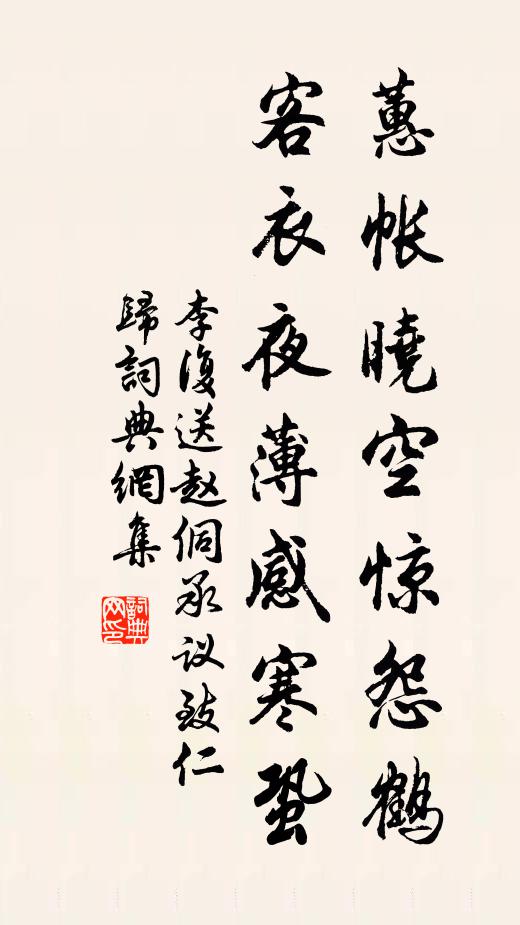 蕙帐曉空惊怨鶴
客衣夜薄感寒蛩
李復送赵侗承议致仁
歸詞典網集
詞典
网印